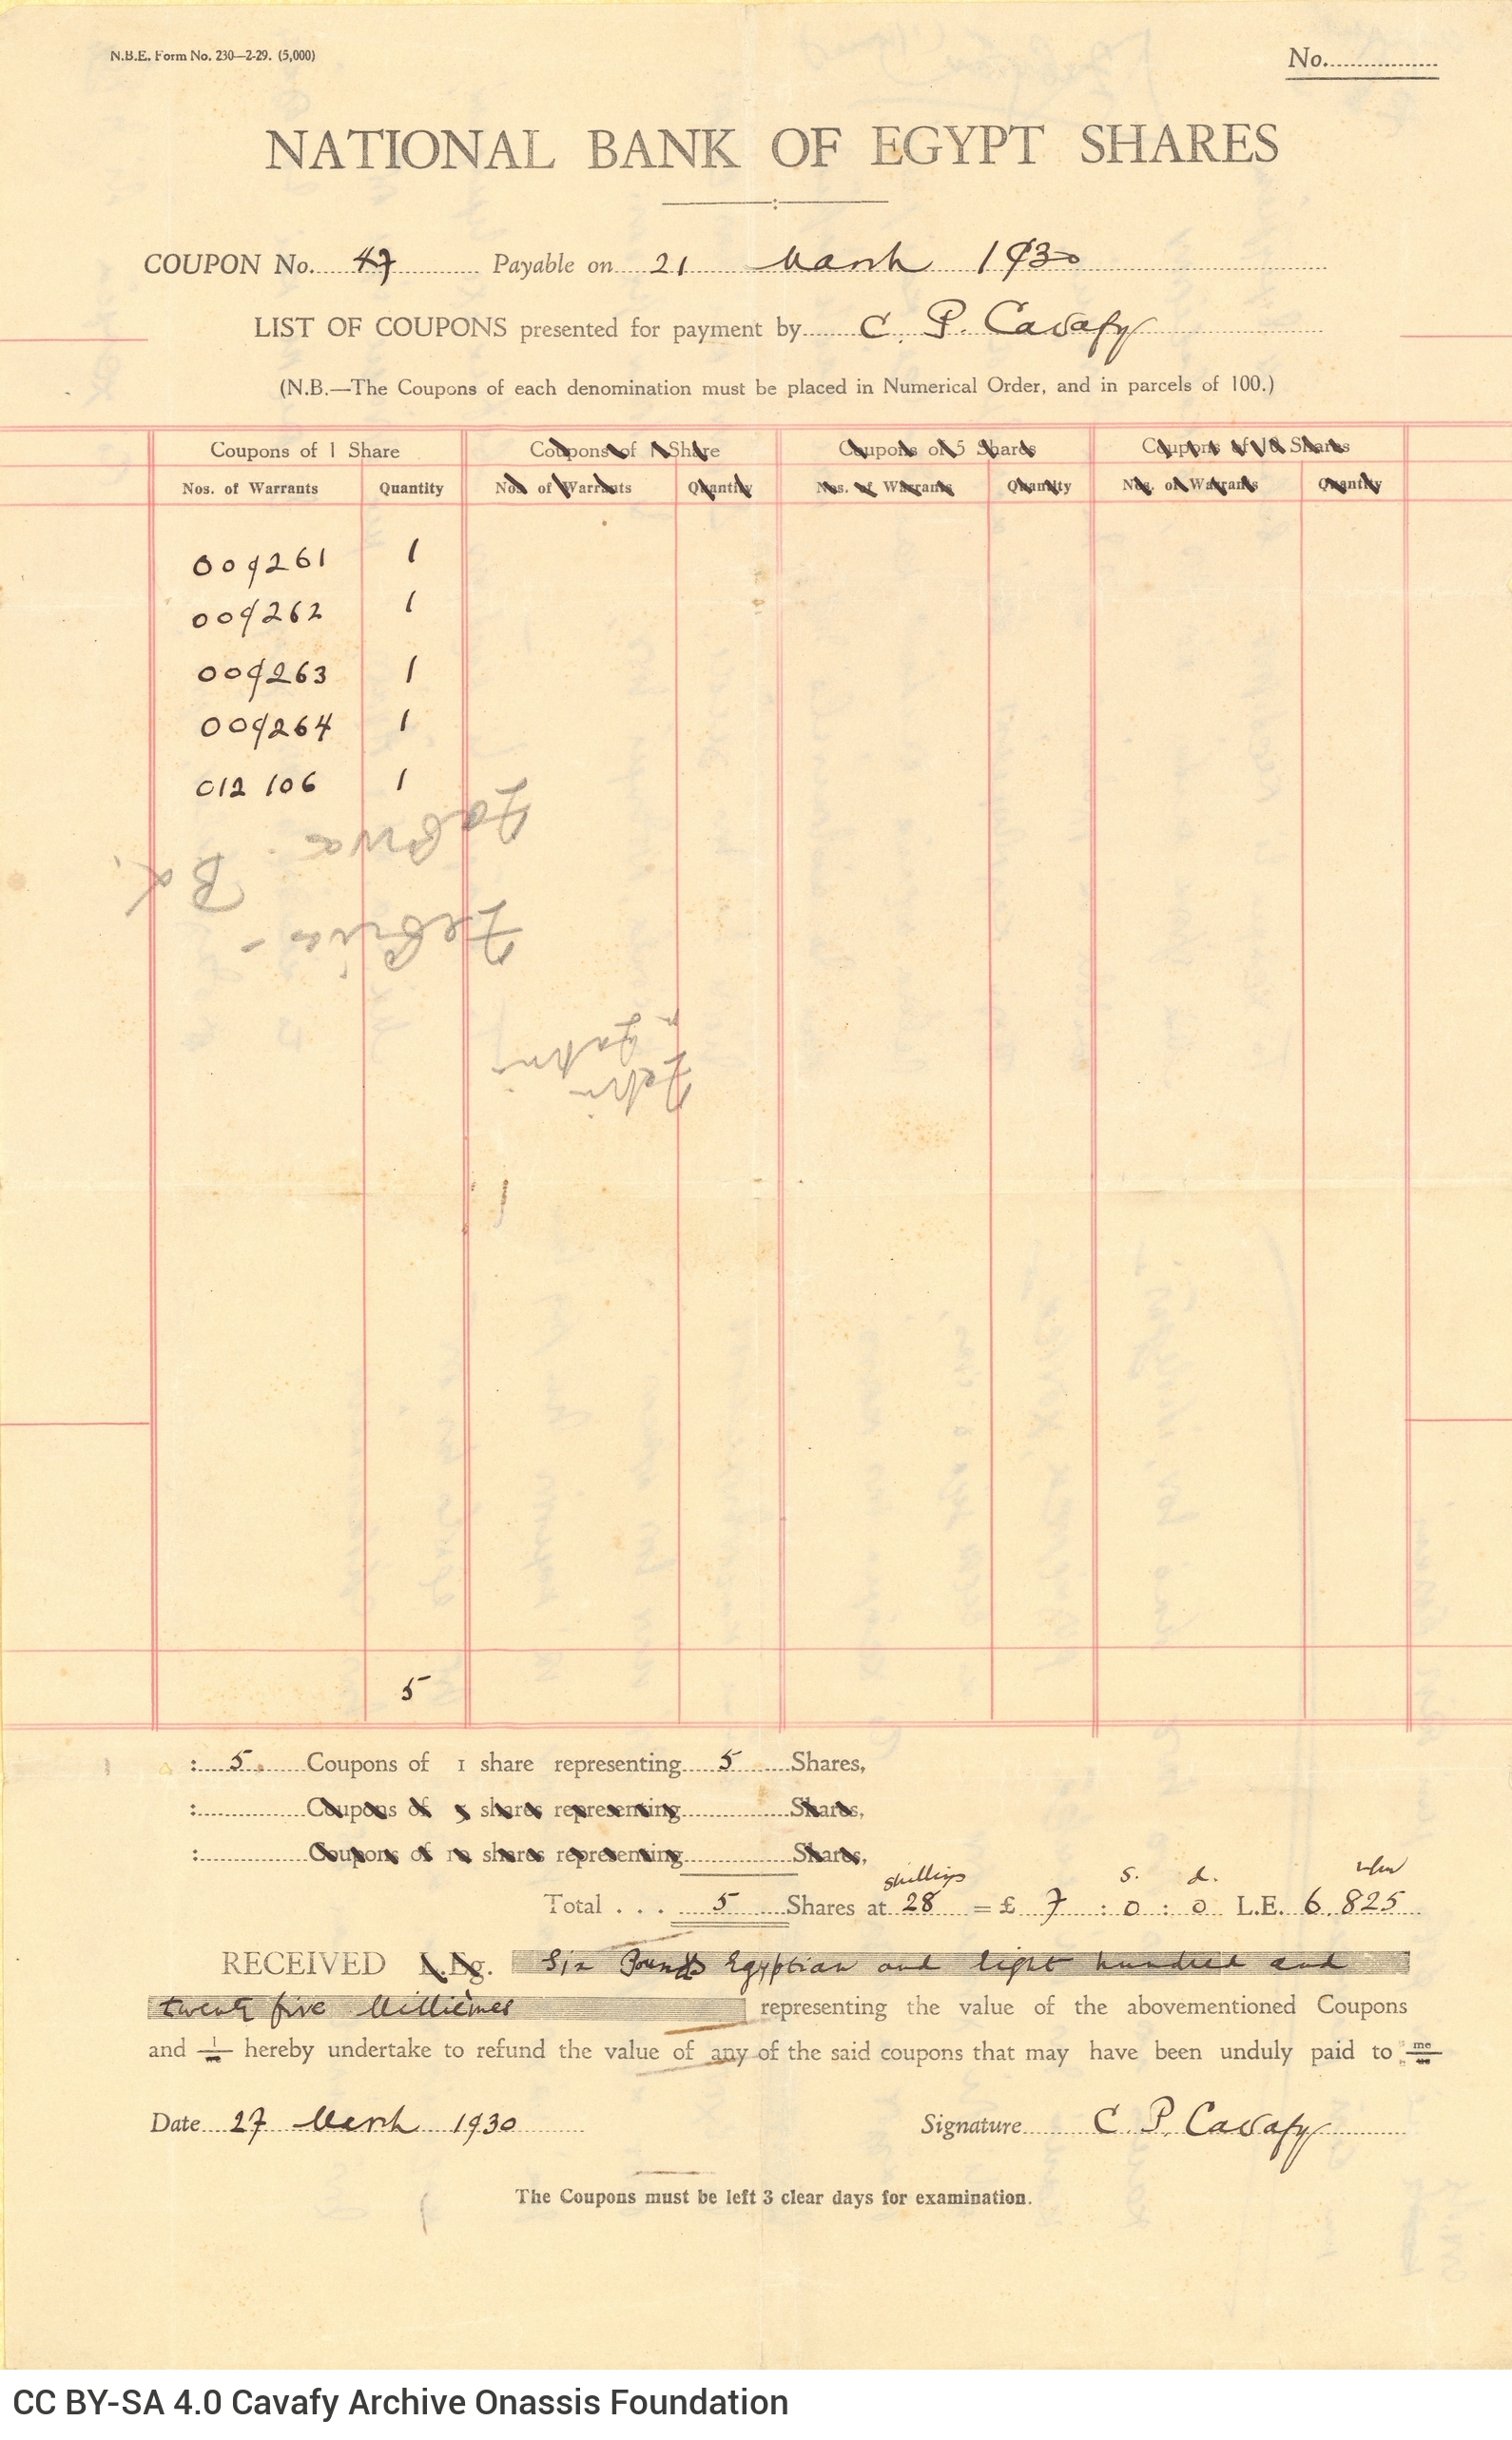 N.B.E. Form No. 230—2-29. (5,000)
No.
NATIONAL BANK OF EGYPT SHARES
COUPON No. 47 Payable on 21 March 1930
LIST OF COUPONS presented for payment by C. P. Cavafy
(N.B.—The Coupons of each denomination must be placed in Numerical Order, and in parcels of 100.)
Coupons of 1 Share Coupons of 1 Share Coupons of 5 Shares Coupons of 10 Shares
Nos. of Warrants Quantity Nos. of Warrants Quantity Nos. of Warrants Quantity Nos. of Warrants Quantity
009261 1
009262 1
009263 1
009264 1
012106 1
5
: 5 Coupons of 1 share representing 5 Shares,
: Coupons of 5 shares representing Shares,
: Coupons of 10 shares representing Shares,
shillings s. d.
Total . . . 5 Shares at 28 = £ 7 : 0 : 0 L.E. 6.825
RECEIVED L.Eg. Six Pounds Egyptian and eight hundred and
twenty five Millièmes representing the value of the abovementioned Coupons
and I hereby undertake to refund the value of any of the said coupons that may have been unduly paid to me
Date 27 March 1930 Signature C. P. Cavafy
The Coupons must be left 3 clear days for examination.
CC BY-SA 4.0 Cavafy Archive Onassis Foundation